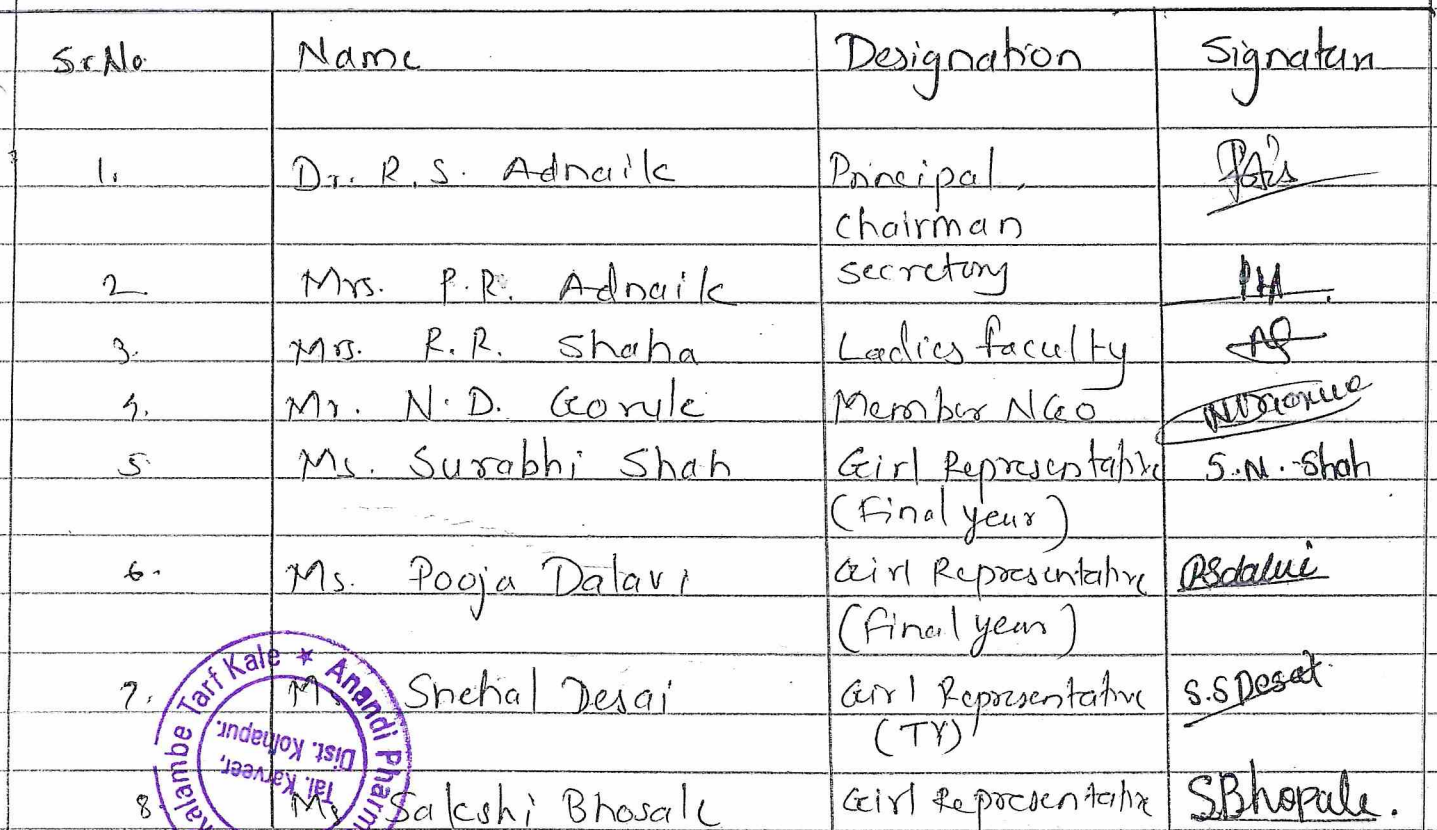 Sr No. Name Designation Signature
1. Dr. R.S. Adnaik Principal,
chairman
2 Mrs. P.R. Adnaik secretary
3. Mrs. R.R. Shaha Ladies faculty
4. Mr. N.D. Gorule Member NGO
5 Ms. Surabhi Shah Girl Representative S.N. Shah
(Final year)
6. Ms. Pooja Dalavi Girl Representative PSdalvi
(Final year)
7. Ms Snehal Desai Girl Representative S.S Desai
(TY)
8 Ms Sakshi Bhosale Girl Representative SBhopale.
Kalambe Tarf Kale * Anandi Pharm
Tal. Karveer,
Dist. Kolhapur.